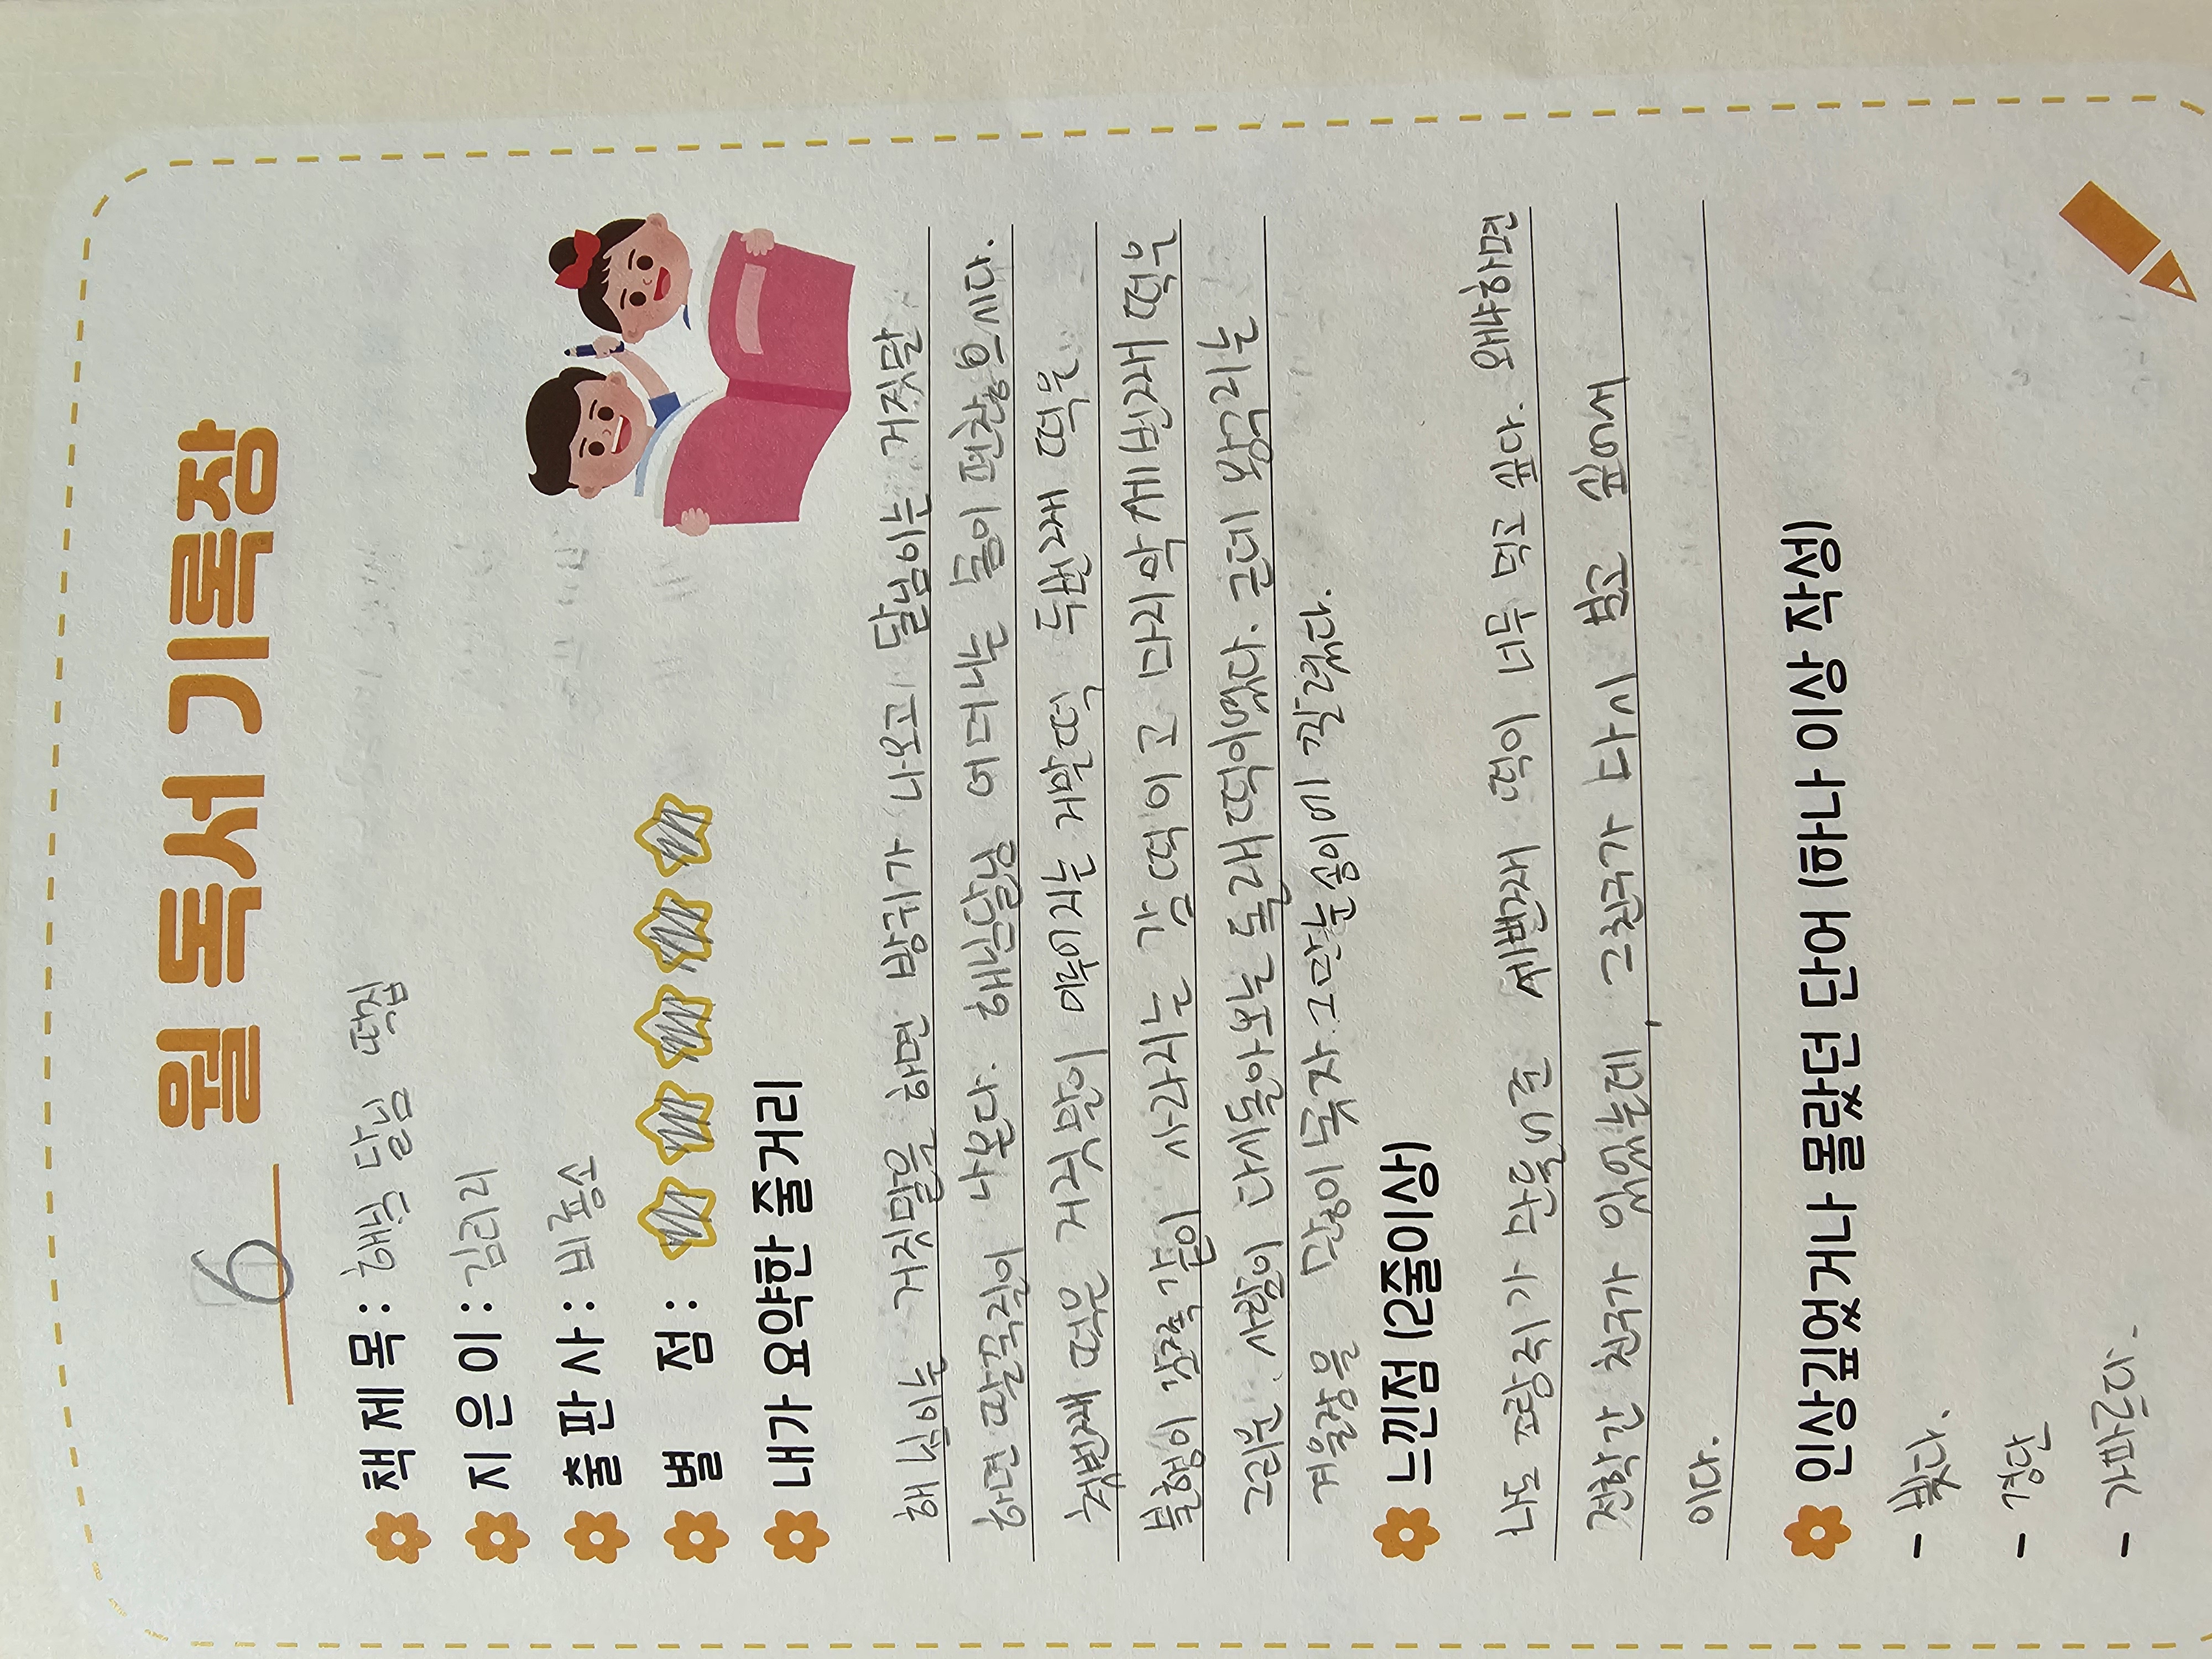 6 월 독서 기록장
책 제 목 : 해님 달님 떡집
지 은 이 : 김리리
출 판 사 : 비룡소
별 점 :
내가 요약한 줄거리
해님이는 거짓말을 하면 방귀가 나오고 달님이는 거짓말
하면 딸꾹질이 나온다. 해님달님 어머니는 몸이 편찮으시다.
첫번째 떡은 거짓말이 이루어지는 거말떡 두번째 떡은
불행이 감쪽같이 사라지는 감떡이고 마지막 세번째 떡은
그리운 사람이 다시돌아오는 돌래떡이였다. 근데 왕구리는
겨울잠을 많이 못자 그만눈송이에 깔렸다.
느낀점 (2줄이상)
나도 꼬랑쥐가 만들어준 세번째 떡이 너무 먹고 싶다. 왜냐하면
전학간 친구가 있었는데, 그친구가 다시 보고 싶어서
이다.
인상깊었거나 몰랐던 단어 (하나 이상 작성)
- 빛다.
- 경단
- 가파르다.